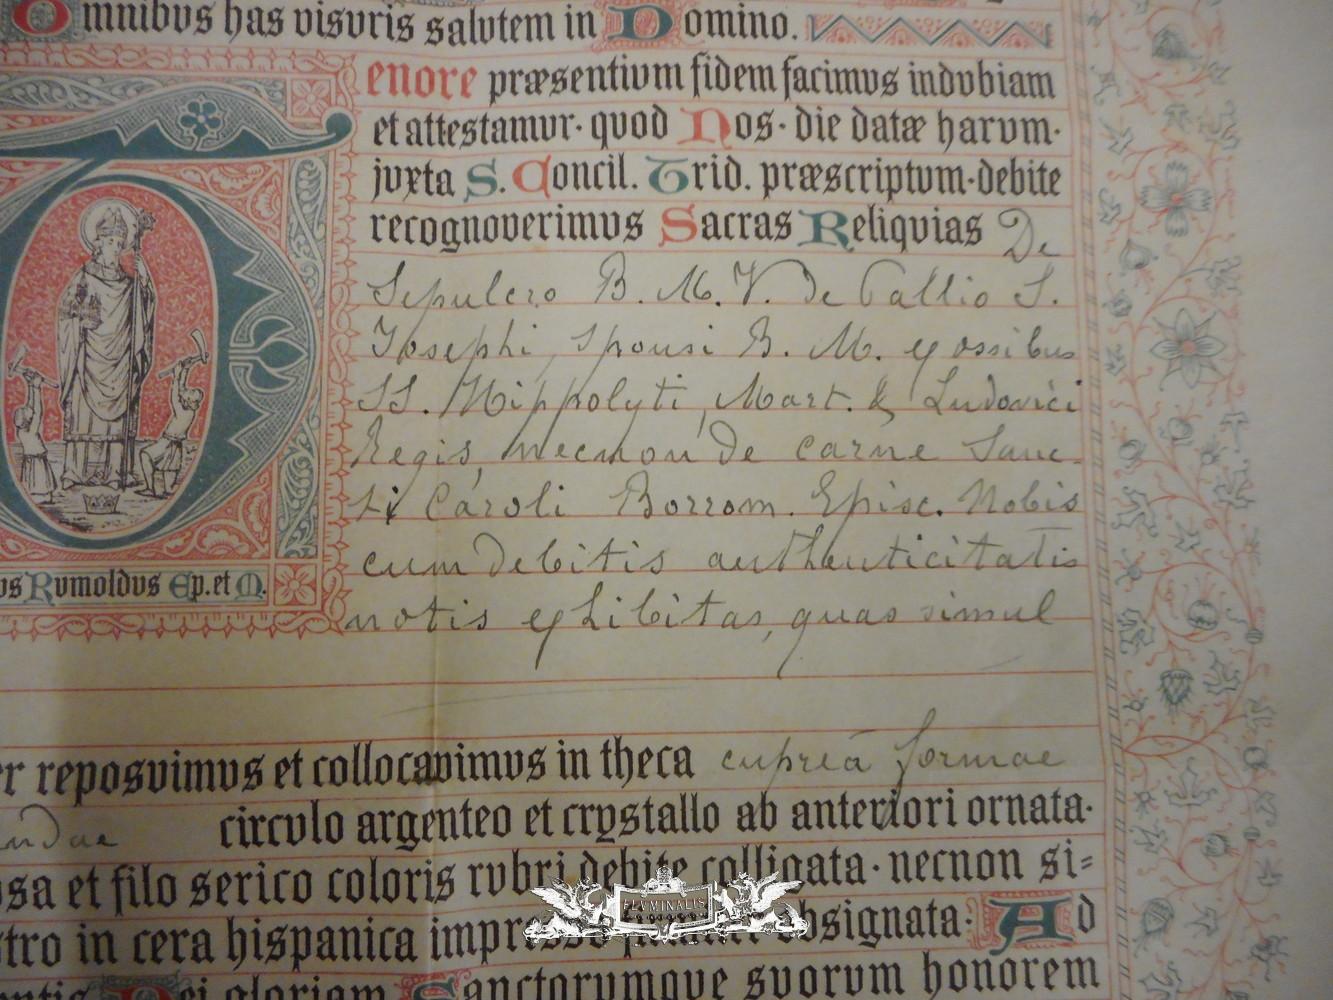 Omnibvs has visvris salvtem in Domino.
Tenore præsentivm fidem facimvs indvbiam
et attestamvr· qvod Nos· die datæ harvm·
jvxta S. Concil. Trid. præscriptvm·debite
recognoverimvs Sacras Reliqvias De
Sepulcro B. M. V. de Pallio S.
Josephi, Sponsi B. M. ex ossibus
SS. Hippolyti, Mart. & Ludovici
Regis, necnon de carne Sanc-
ti Caroli Borrom. Episc. Nobis
cum debitis authenticitatis
notis exhibitas, quas simul
vs Rvmoldvs Ep. et M.
er reposvimvs et collocavimvs in theca cupreâ formae
ndae circvlo argenteo et crystallo ab anteriori ornata·
osa et filo serico coloris rvbri debite colligata· necnon si=
stro in cera hispanica impresso obsignata: Ad
entis Dei gloriam Sanctorvmqve svorvm honorem
FLVMINALIS